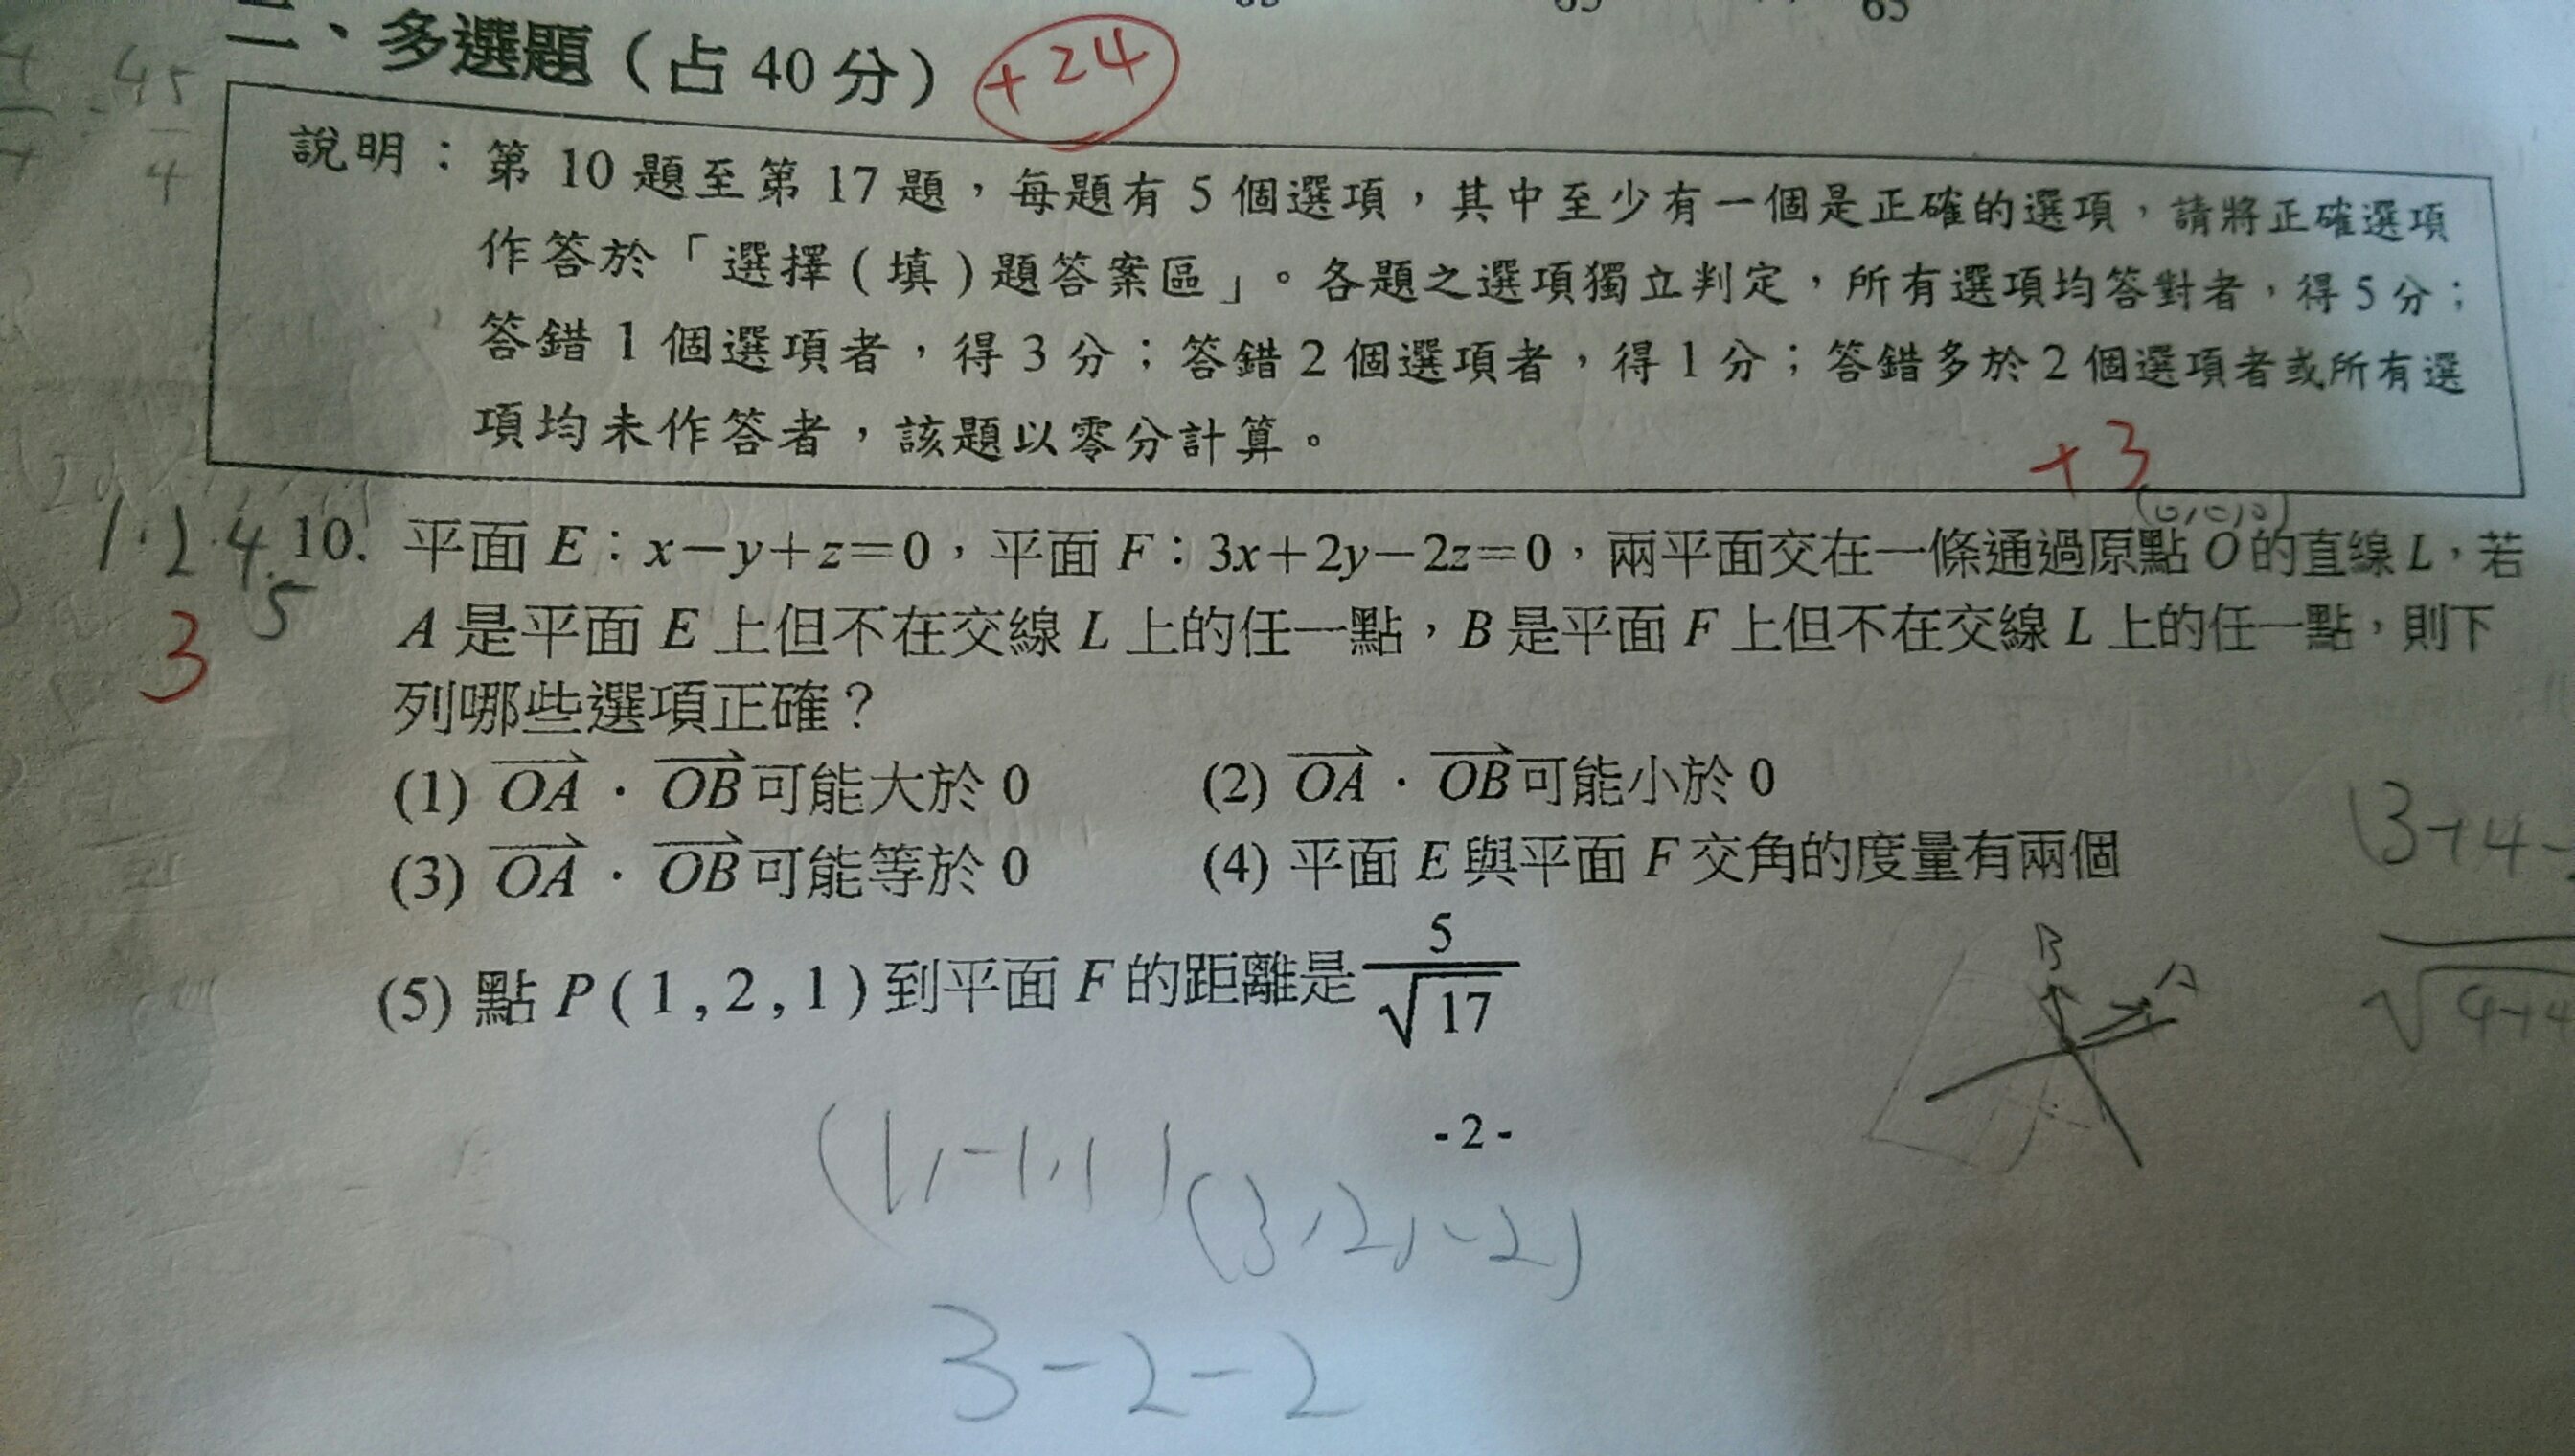 65
二、多選題（占 40 分）
+24
45
4
說明：第 10 題至第 17 題，每題有 5 個選項，其中至少有一個是正確的選項，請將正確選項
作答於「選擇(填)題答案區」。各題之選項獨立判定，所有選項均答對者，得 5 分；
答錯 1 個選項者，得 3 分；答錯 2 個選項者，得 1 分；答錯多於 2 個選項者或所有選
項均未作答者，該題以零分計算。
+3
1.2.4.5
3
10. 平面 E：x−y+z=0，平面 F：3x+2y−2z=0，兩平面交在一條通過原點 O 的直線 L，若
A 是平面 E 上但不在交線 L 上的任一點，B 是平面 F 上但不在交線 L 上的任一點，則下
列哪些選項正確？
(1) OA · OB 可能大於 0 (2) OA · OB 可能小於 0
(3) OA · OB 可能等於 0 (4) 平面 E 與平面 F 交角的度量有兩個
(5) 點 P(1,2,1) 到平面 F 的距離是 5/√17
(3+4-
√9+4
B
A
-2-
(1,-1,1) (3,2,-2)
3-2-2